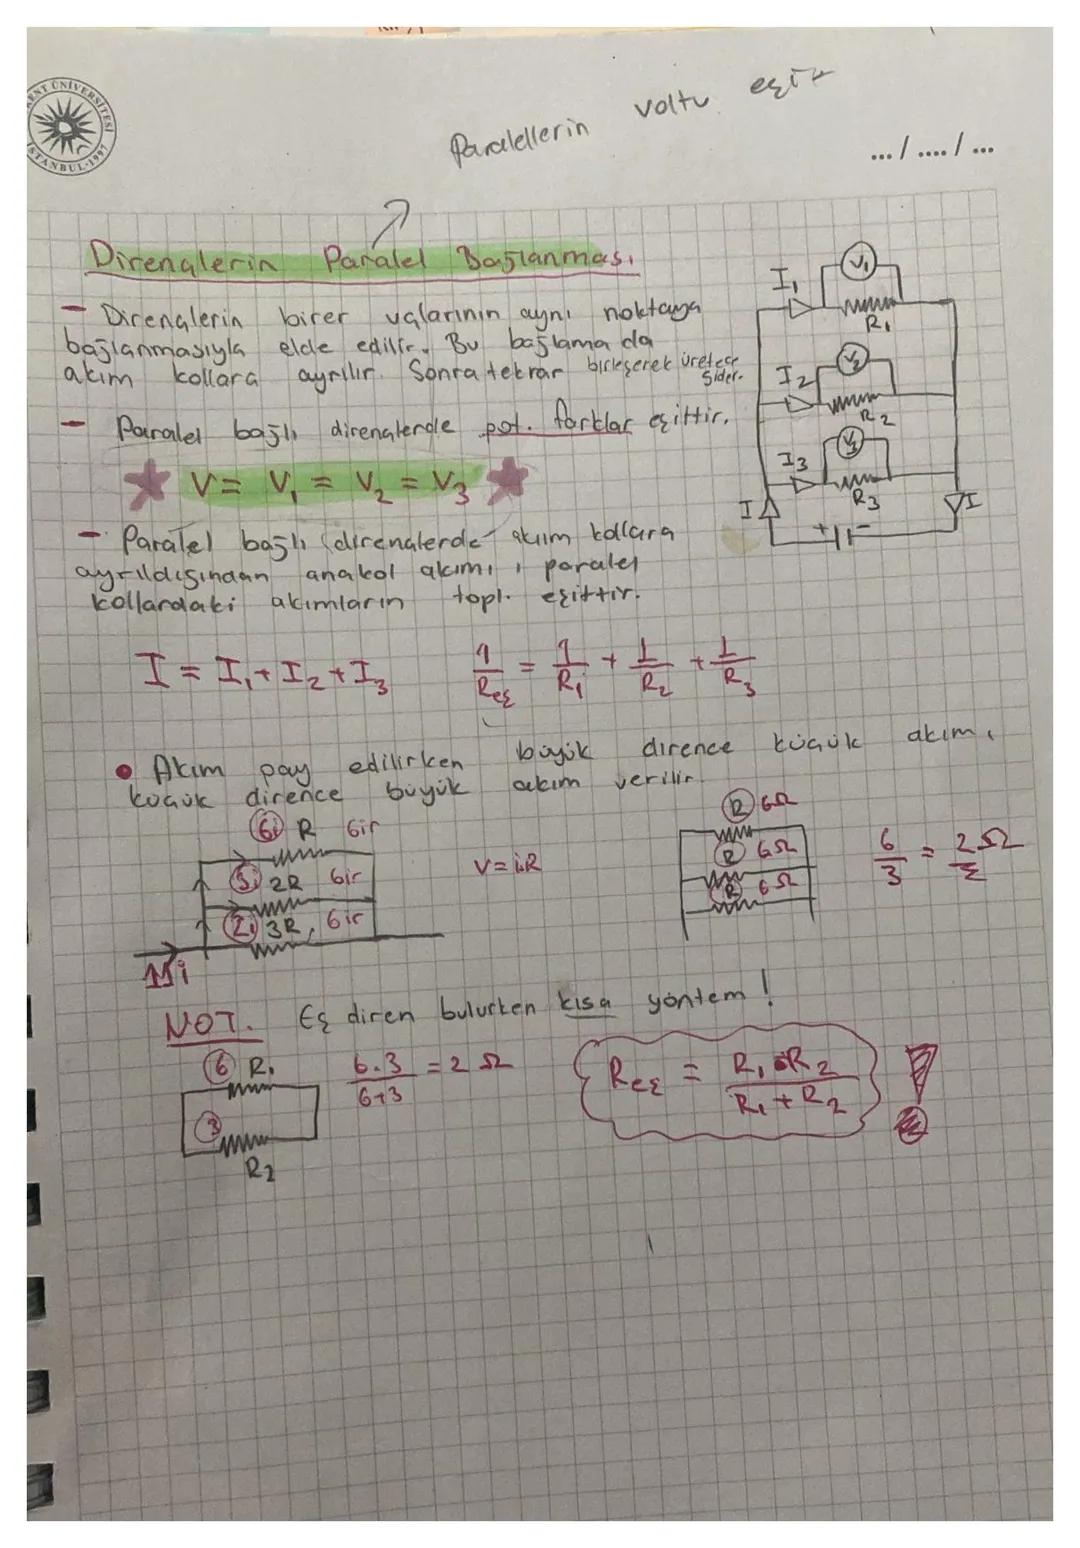 KENT ÜNİVERSİTESİ
İSTANBUL-1997
Paralellerin voltu eşit
... / .... / ...
Dirençlerin Paralel Bağlanması
- Dirençlerin birer uçlarının aynı noktaya
bağlanmasıyla elde edilir. Bu bağlama da
akım kollara ayrılır. Sonra tekrar birleşerek üretece
gider.
- Paralel bağlı dirençlerde pot. farklar eşittir.
V = V₁ = V₂ = V₃
- Paralel bağlı dirençlerde akım kollara
ayrıldığından anakol akımı, paralel
kollardaki akımların topl. eşittir.
I₁ V₁ R₁
I₂ V₂ R₂
I₃ V₃ R₃
I + - I
I = I₁ + I₂ + I₃
1/Reş = 1/R₁ + 1/R₂ + 1/R₃
• Akım pay edilirken büyük dirence küçük akım,
küçük dirence büyük akım verilir.
6i R 6ir
3i 2R 6ir
2i 3R, 6ir
11i
V = i.R
R 6Ω
R 6Ω
R 6Ω
6/3 = 2Ω
NOT. Eş diren bulurken kısa yöntem!
6 R₁
3
R₂
6.3/6+3 = 2 Ω
Reş = R₁ • R₂ / R₁ + R₂